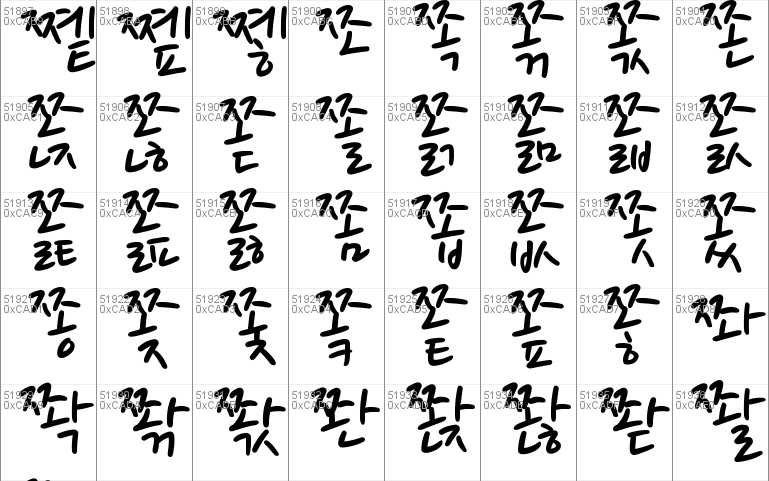 51897 51898 51899 51900 51901 51902 51903 51904
0xCAB9 0xCABA 0xCABB 0xCABC 0xCABD 0xCABE 0xCABF 0xCAC0
쪹 쪺 쪻 쪼 쪽 쪾 쪿 쫀
51905 51906 51907 51908 51909 51910 51911 51912
0xCAC1 0xCAC2 0xCAC3 0xCAC4 0xCAC5 0xCAC6 0xCAC7 0xCAC8
쫁 쫂 쫃 쫄 쫅 쫆 쫇 쫈
51913 51914 51915 51916 51917 51918 51919 51920
0xCAC9 0xCACA 0xCACB 0xCACC 0xCACD 0xCACE 0xCACF 0xCAD0
쫉 쫊 쫋 쫌 쫍 쫎 쫏 쫐
51921 51922 51923 51924 51925 51926 51927 51928
0xCAD1 0xCAD2 0xCAD3 0xCAD4 0xCAD5 0xCAD6 0xCAD7 0xCAD8
쫑 쫒 쫓 쫔 쫕 쫖 쫗 쫘
51929 51930 51931 51932 51933 51934 51935 51936
0xCAD9 0xCADA 0xCADB 0xCADC 0xCADD 0xCADE 0xCADF 0xCAE0
쫙 쫚 쫛 쫜 쫝 쫞 쫟 쫠